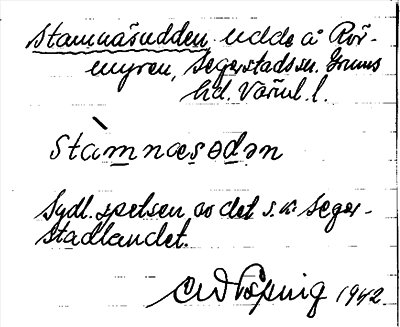 Stamnäsudden, udde å Rör-
myren, Segerstads sn. Grums
hd. Värml. l.
stàmnæsədən
Sydl. spetsen av det s. k. Seger-
stadlandet.
1942